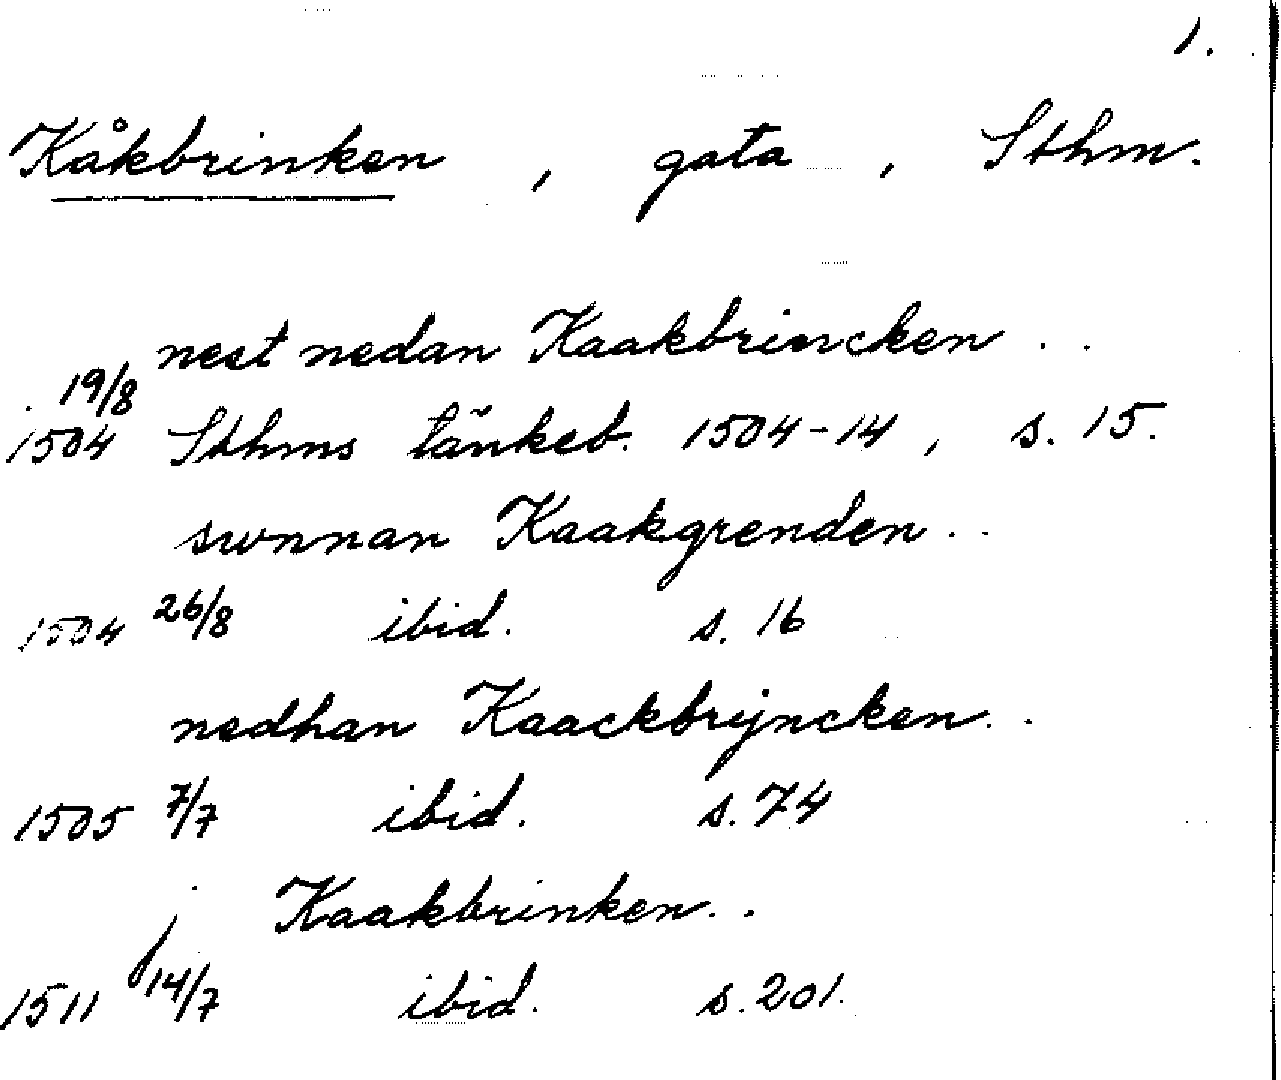 1.
Kåkbrinken , gata , Sthm.
nest nedan Kaakbrincken . .
19/8
1504 Sthms tänkeb. 1504-14 , s. 15.
swnnan Kaakgrenden . .
1504 26/8 ibid. s. 16
nedhan Kaackbrijncken . .
1505 7/7 ibid. s. 74
j Kaakbrinken . .
1511 14/7 ibid. s. 201.